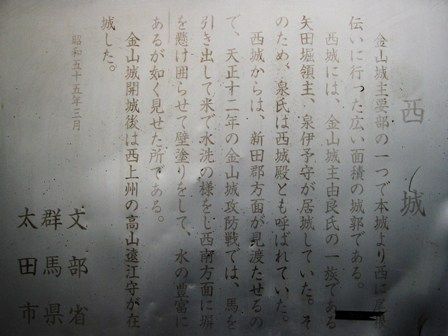 西城
金山城主要部の一つで本城より西に尾根
伝いに行った広い面積の城郭である。
西城には、金山城主由良氏の一族である
矢田堀領主、泉伊予守が居城していた。そ
のため、泉氏は西城殿とも呼ばれていた。
西城からは、新田郡方面が見渡たせるの
で、天正十二年の金山城攻防戦では、馬を
引き出して米で水洗の様をじ西南方面に塀
を懸け囲らせて壁塗りをして、水の豊富に
あるが如く見せた所である。
金山城開城後は西上州の高山遠江守が在
城した。
昭和五十五年三月
文部省
群馬県
太田市